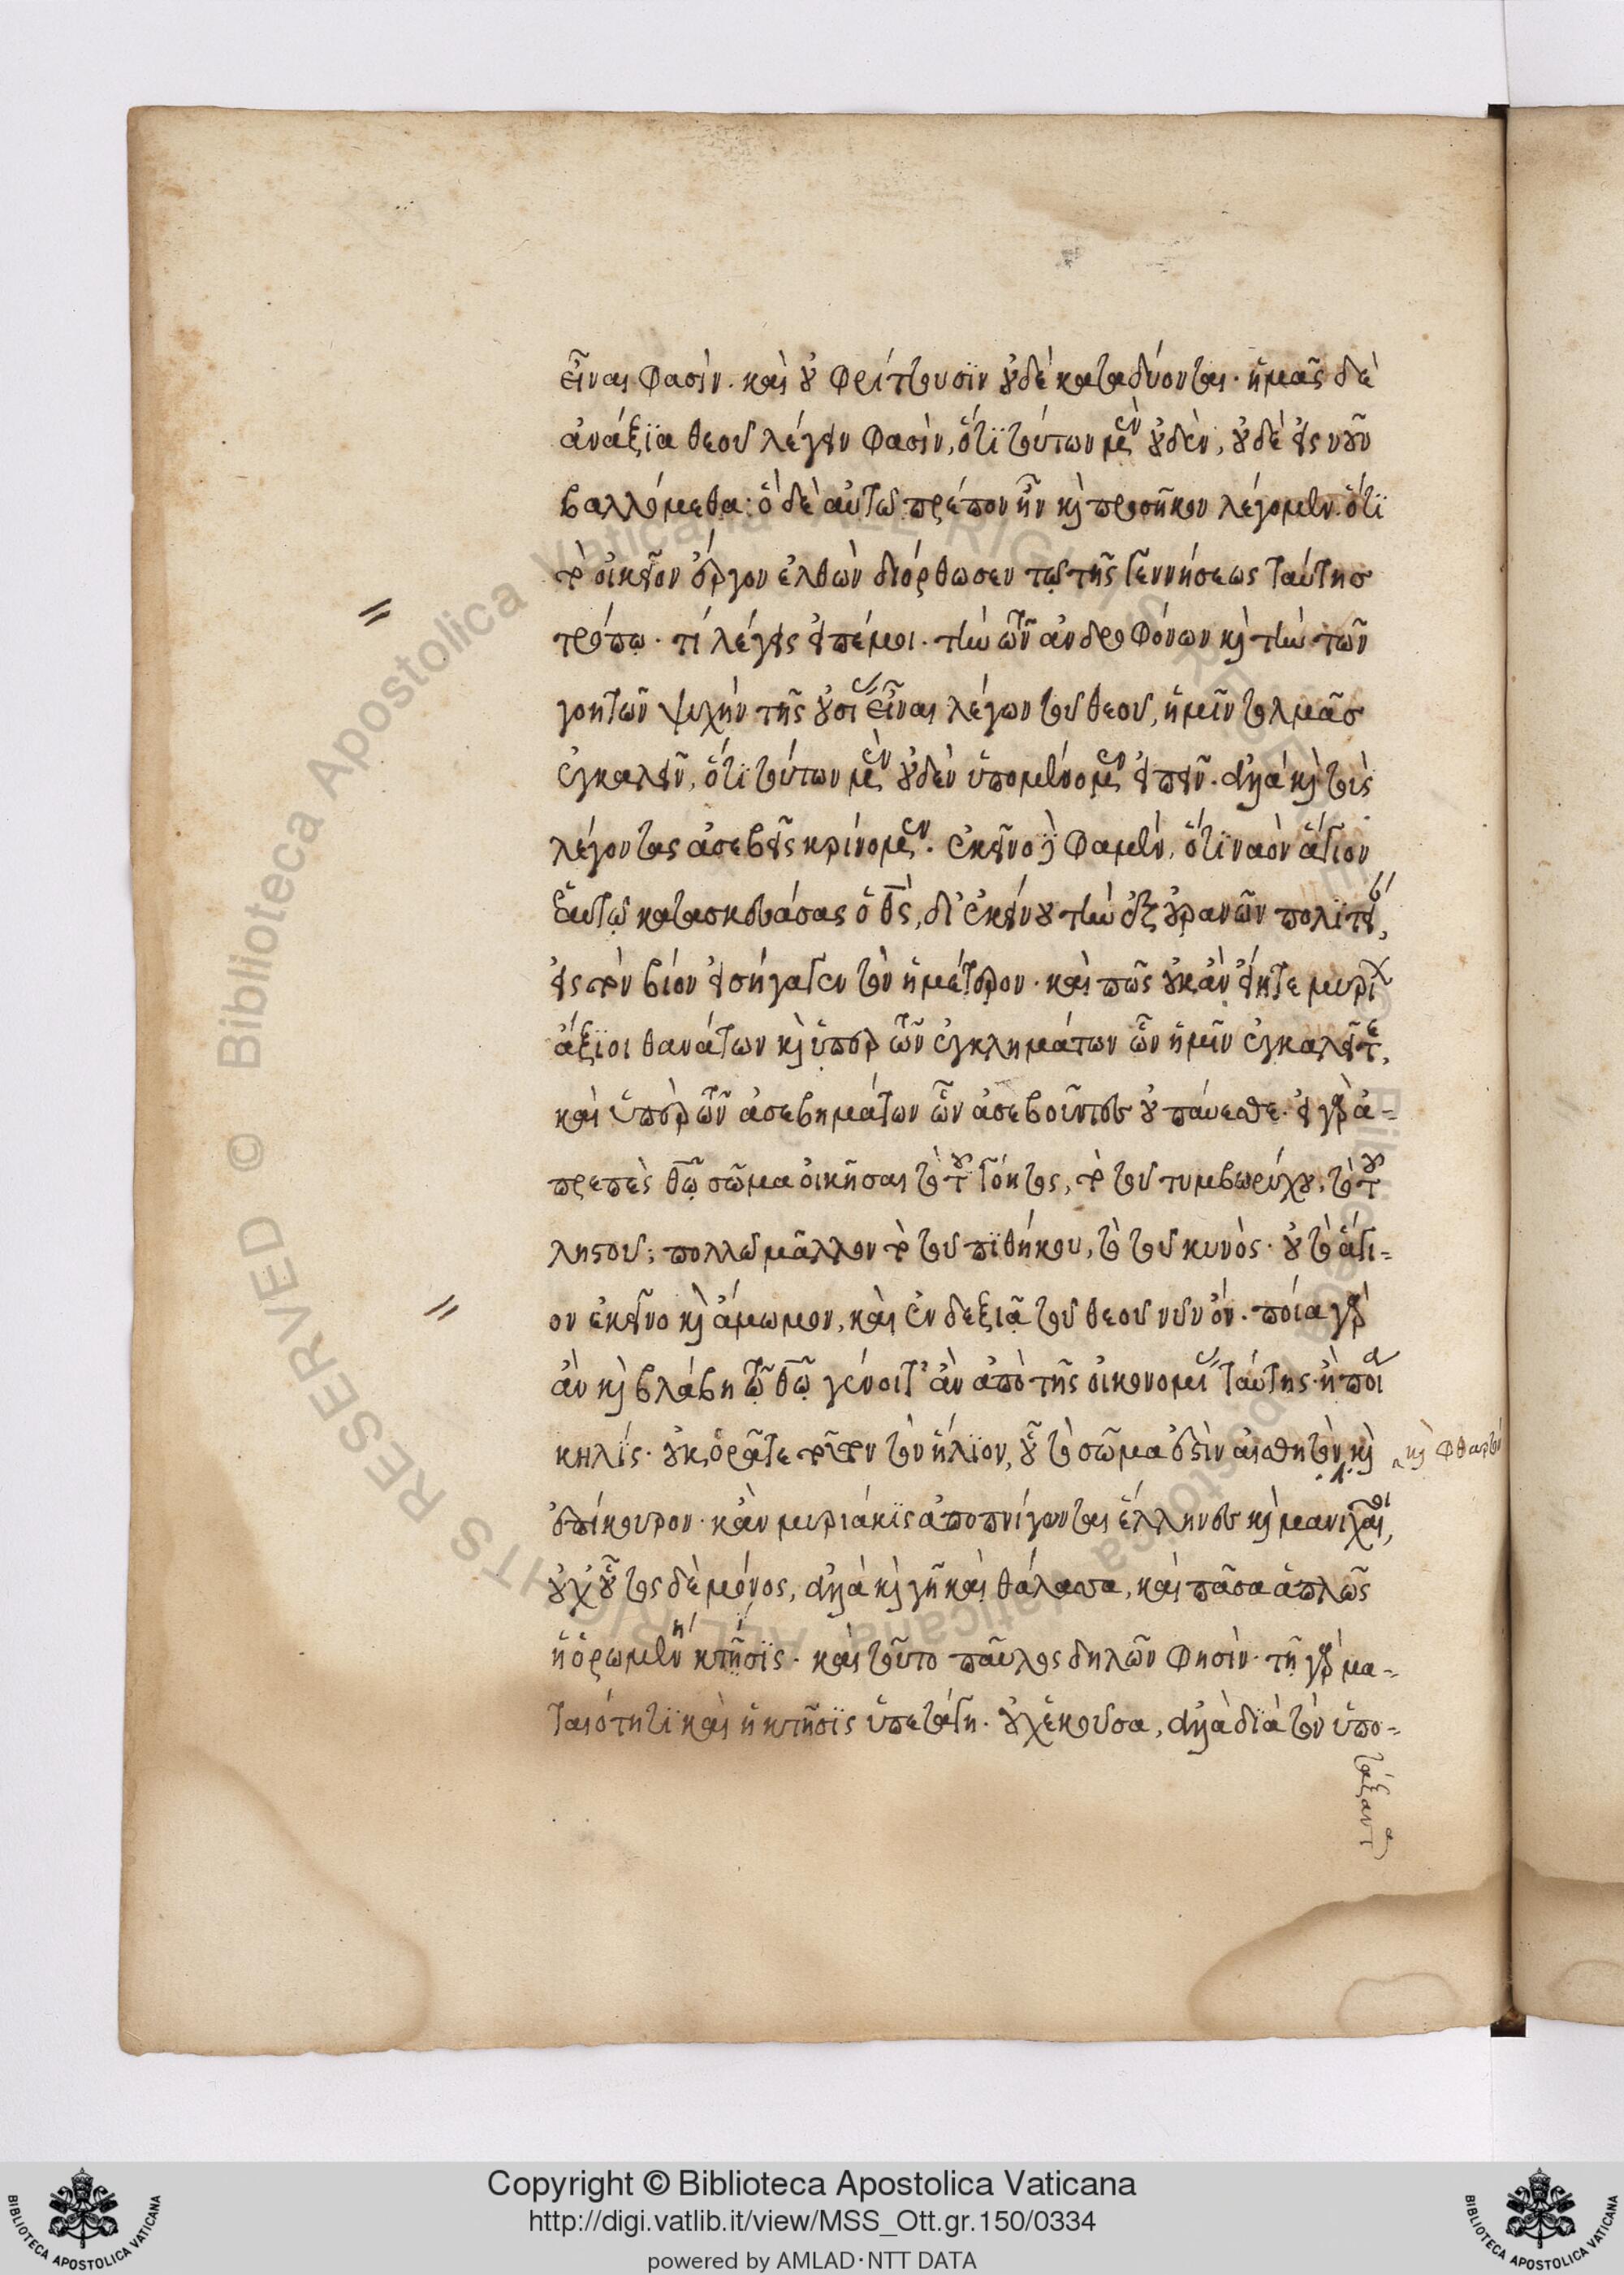 εἶναι φασὶν. καὶ οὐ φρίττουσϊν οὐδὲ καταδύονται. ἡμᾶς δὲ
ἀνάξϊα θεοῦ λέγειν φασὶν, ὅτϊ τούτων μὲν οὐδὲν, οὐδὲ εἰς νοῦν
βαλλόμεθα: ὃ δὲ αὐτῶ πρέπον ἦν κὶ προσῆκον λέγομεν. ὅτϊ
τὸ οἰκεῖον ἔργον ἐλθὼν διόρθωσεν τῷ τῆς γεννήσεως ταύτησ
τρόπῳ. τί λέγεις εἰπέ μοι. τὴν τῶν ἀνδροφόνων κὶ τὴν τῶν
γοητῶν ψυχὴν τῆς οὐσίας εἶναι λέγων τοῦ θεοῦ, ἡμῖν τολμᾶσ
ἐγκαλεῖν, ὅτϊ τούτων μὲν οὐδὲν ὑπομένομεν εἰπεῖν. ἀλλὰ κὶ τοὺς
λέγοντας ἀσεβεῖς κρίνομεν. ἐκεῖνο δὲ φαμὲν, ὅτϊ ναὸν ἅγιον
ἑαυτῷ κατασκευάσας ὁ θς, δι' ἐκείνου τὴν ἐξ οὐρανῶν πολϊτεί,
εἰς τὸν βίον εἰσήγαγεν τὸν ἡμέτερον. καὶ πῶς οὐκ ἂν εἴητε μυρί
ἄξϊοι θανάτων κὶ ὑπὲρ τῶν ἐγκλημάτων ὧν ἡμῖν ἐγκαλεῖτε,
καὶ ὑπὲρ τῶν ἀσεβημάτων ὧν ἀσεβοῦντες οὐ παύεσθε. εἰ γὰρ ἀ-
πρεπὲς θῷ σῶμα οἰκῆσαι τὸ τοῦ γόητος, τὸ τοῦ τυμβωρύχου, τὸ τοῦ
ληστοῦ; πολλῶ μᾶλλον τὸ τοῦ πϊθήκου, τὸ τοῦ κυνὸς. οὐ τὸ ἅγι-
ον ἐκεῖνο κὶ ἄμωμον, καὶ ἐν δεξιᾷ τοῦ θεοῦ νῦν ὄν. ποία γὰρ
ἂν κὶ βλάβη τῷ θῷ γένοιτ' ἂν ἀπὸ τῆς οἰκονομίας ταύτης. ἢ ποία
κηλίς. οὐκ ὁρᾶτε τοῦτον τὸν ἥλϊον, οὗ τὸ σῶμα ἐστὶν αἰσθητὸν κὶ
κὶ φθαρτὸν
ἐπίκηρον. κἂν μυριάκϊς ἀποπνίγωνται ἕλληνες κὶ μανιχαῖοι,
οὐχ οὗτος δὲ μόνος, ἀλλὰ κὶ γῆ καὶ θάλασσα, καὶ πᾶσα ἁπλῶς
ἡ ὁρωμένη κτῆσϊς. καὶ τοῦτο παῦλος δηλῶν φησὶν. τῇ γὰρ μα-
ταιότητϊ καὶ ἡ κτῆσϊς ὑπετάγη. οὐχ ἑκοῦσα, ἀλλὰ δϊὰ τὸν ὑπο-
τάξαντα
Copyright © Biblioteca Apostolica Vaticana
http://digi.vatlib.it/view/MSS_Ott.gr.150/0334
powered by AMLAD·NTT DATA